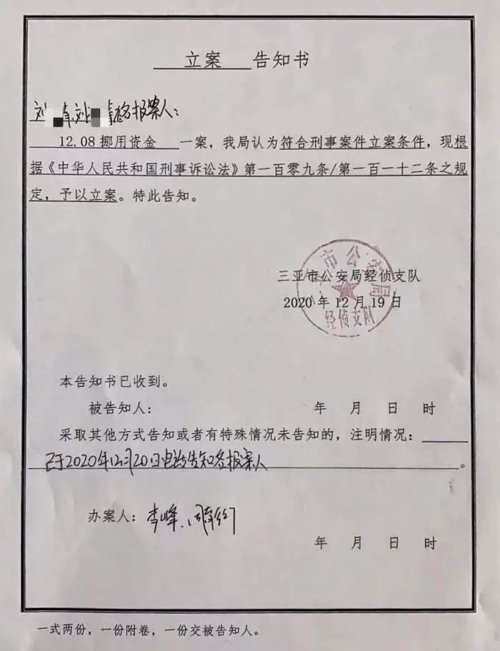 立案 告知书
刘 等各报案人：
12.08挪用资金 一案，我局认为符合刑事案件立案条件，现根
据《中华人民共和国刑事诉讼法》第一百零九条/第一百一十二条之规
定，予以立案。特此告知。
三亚市公安局经侦支队
2020年12月19日
市公安局
经侦支队
本告知书已收到。
被告知人： 年 月 日 时
采取其他方式告知或者有特殊情况未告知的，注明情况：
已于2020年12月20日电话告知各报案人 。
办案人：李峰、
年 月 日 时
一式两份，一份附卷，一份交被告知人。